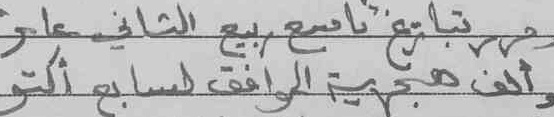 بتاريخ تاسع ربيع الثاني عام
وألف هجرية الموافق لسابع أكتو